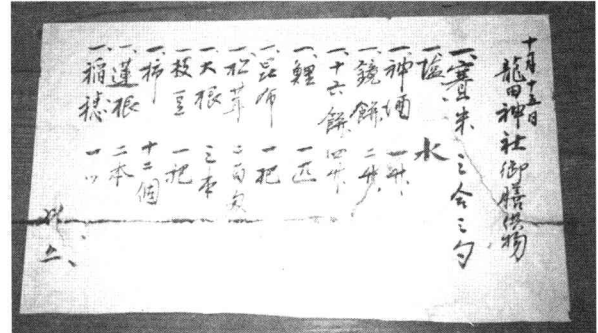 十月十五日
龍田神社御膳供物
一、賽米 三合三勺
一、塩 水
一、神酒 一升、
一、鏡餅 二升、
一、十六餅 四升、
一、鯉 一匹
一、昆布 一把
一、松茸 二百匁
一、大根 三本
一、枝豆 一把
一、柿 十二個
一、蓮根 二本
一、稲穂
以上、